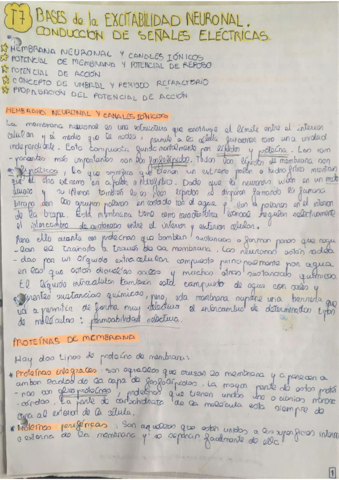 T7 BASES de la EXCITABILIDAD NEURONAL.
CONDUCCIÓN DE SEÑALES ELÉCTRICAS.
MEMBRANA NEURONAL Y CANALES IÓNICOS
POTENCIAL DE MEMBRANA Y POTENCIAL DE REPOSO
POTENCIAL DE ACCIÓN
CONCEPTO DE UMBRAL Y PERIODO REFRACTARIO
PROPAGACIÓN DEL POTENCIAL DE ACCIÓN
MEMBRANA NEURONAL Y CANALES IÓNICOS
La membrana neuronal es una estructura que constituye el límite entre el interior
celular y el medio que la rodea y permite a la célula funcionar como una unidad
independiente. Está compuesta fundamentalmente por lípidos y proteína. Los com-
ponentes más importantes son los fosfolípidos. Todos los lípidos de membrana son
que significa que tienen un extremo polar o hidrofílico mientras
que el otro extremo es apolar o hidrofóbico. Dado que la neurona está en un medio
acuoso y su
capa con los grupos polares en contacto con el agua y
de la capa. Esta membrana tiene como
el intercambio de sustancias entre el interior y exterior celular.
Para ello existen las proteínas que bombean sustancias o forman poros que regu-
lan ese tránsito a través de la membrana. Las neuronas están rodea-
das por el líquido extracelular compuesto principalmente por agua,
en el que están disueltas sales y muchas otras sustancias químicas.
El líquido intracelular también está compuesto de agua con sales y
diferentes sustancias químicas, pero, esta membrana supone una barrera que
va a permitir de forma muy selectiva el intercambio de determinados tipos
de moléculas: permeabilidad selectiva.
PROTEÍNAS DE MEMBRANA
Hay dos tipos de proteína de membrana:
Proteínas integrales: son aquellas que cruzan la membrana y aparecen a
ambos lados de la capa de fosfolípidos. La mayor parte de estas proteí-
nas son glicoproteína, proteínas que tienen unidos uno o varios mono-
sacáridos. La parte de carbohidrato de la molécula está siempre de
cara al exterior de la célula.
Proteínas periféricas: Son aquellas que están unidas a la superficie interna
o externa de la membrana y se separan fácilmente de ella.
1